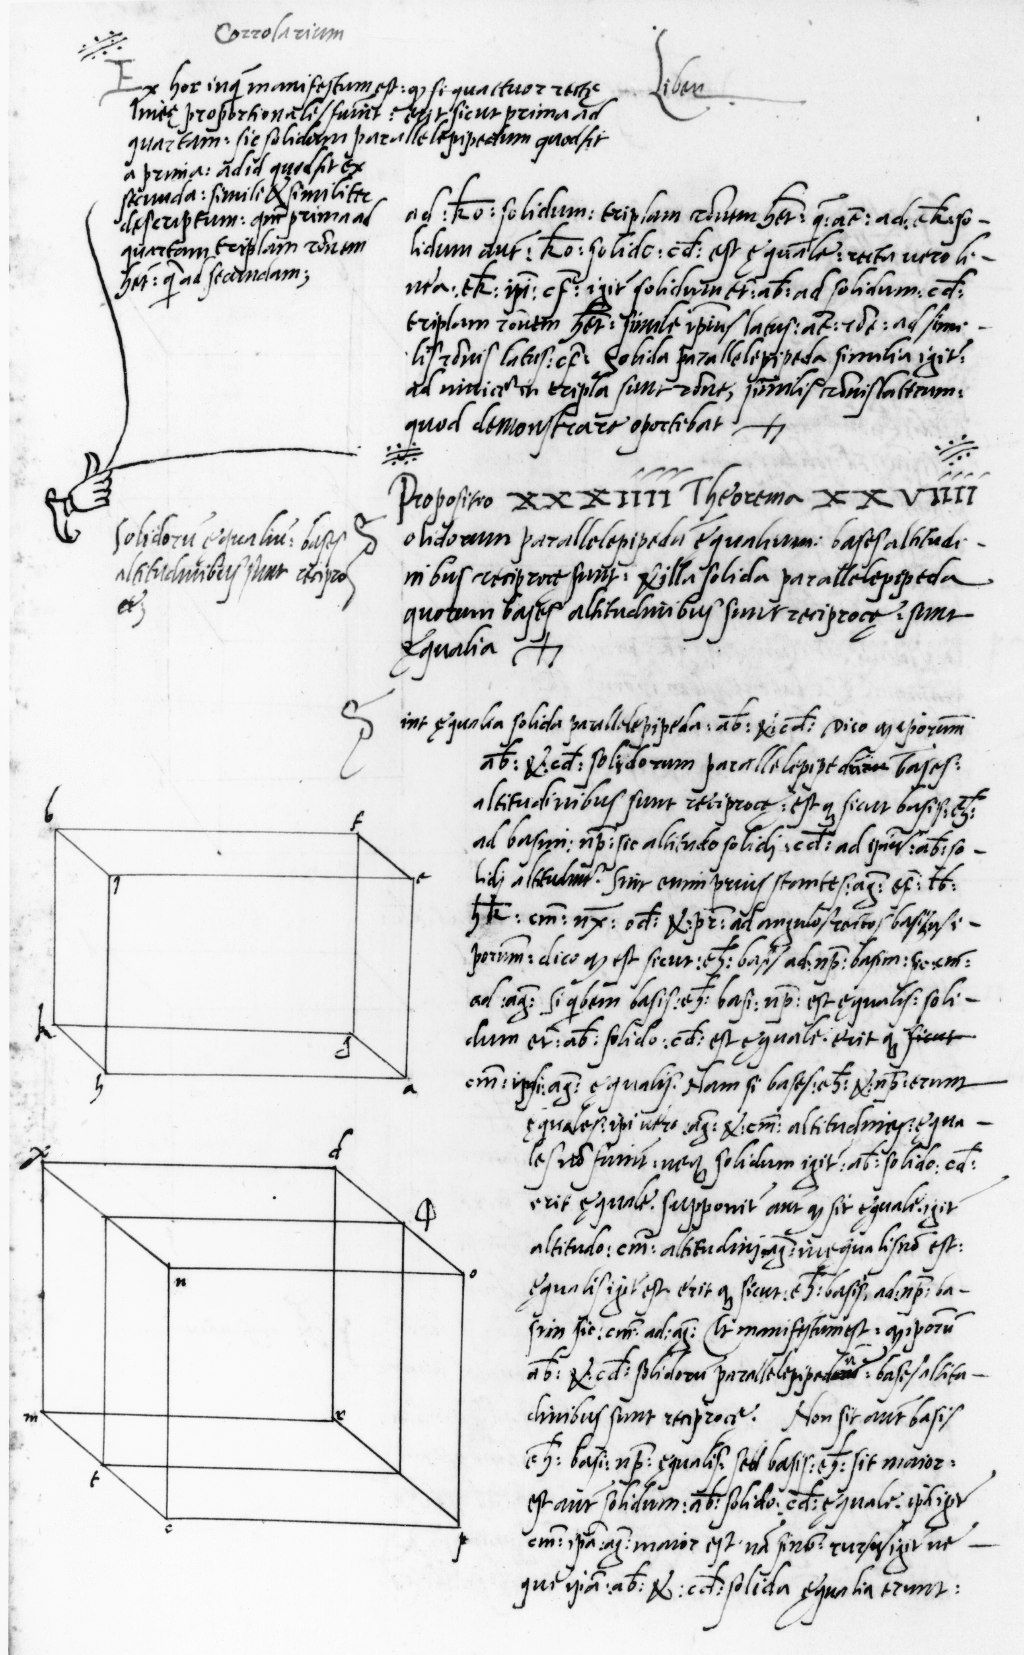 Corrolarium
Liber
Ex hoc inq᷑ manifestum est: ꝙ si quattuor rectę
lineę proportionales fuĩnt: erit sicut prima ad
quartam: sic solidum parallelepipedum quod fit
a prima: ad id quod fit ex
secunda: simili & similiter
descriptum: qm̃ prima ad
quartam triplam rõnem
het̃: q̃ ad secundam;
ad: ko: solidum: triplam rõnem het̃: q̃: ae: ad: ek: so-
lidum aut̃: ko: solido: cd: est ęquale: recta vero li-
nea: ek: ipi: cf: igit̃ solidum et̃: ab: ad solidum: cd:
triplam rõnem het̃: simile ipius latus: ae: rõe: ad simi-
lis rõnis latus: cf: Solida parallelepipeda similia igit̃:
ad invicẽ in tripla sunt rõne, similis rõnis laterum:
quod demonstrare oportibat
Propositio XXXIIII Theorema XXVIIII
Solidorũ ęqualiũ: bases
altitudinibus sunt recipro
cę;
Solidorum parallelepipedũ ęqualium: bases altitudi-
nibus reciprocę sunt: & illa solida parallelepipeda
quorum bases altitudinibus sunt reciprocę: sunt
ęqualia
Sint ęqualia solida parallelepipeda: ab: & cd: Dico ꝙ iporum
ab: & cd: solidorum parallelepipedum bases:
altitudinibus sunt reciprocę: estꝙ sicut basis: eh:
ad basim: np: sic altitudo solidi: cd: ad ab: so-
lidi altitudinẽ. Sint enim prius stantes: ag: ef: lb:
hk: cm: nx: od: & pr: ad angulos rectos basibus i-
porum: dico ꝙ est sicut: eh: basis ad: np: basim: sic cm:
ad: ag: Si q̃dem basis: eh: basi: np: est ęqualis: soli-
dum et̃: ab: solido: cd: est ęquale: erit ꝙ sicut
cm: ipsi: ag: ęqualis. Nam si bases: eh: & np: erunt
ęquales: ipi vero: ag: & cm: altitudines: ęqua-
les nõ fuĩnt: neꝙ solidum igit̃: ab: solido: cd:
erit ęquale. supponit̃ aut̃ ꝙ sit ęquale. igit̃
altitudo: cm: altitudini: ag: inequalis nõ est:
ęqualis igit̃ est erit ꝙ sicut: eh: basis, ad: np: ba-
sim sic: cm: ad: ag: Et manifestum est: ꝙ iporũ
ab: & cd: solidorũ parallelepipedorũ: bases altitu-
dinibus sunt reciprocę. Non sit aut̃ basis
eh: basi: np: ęqualis: sed basis: eh: sit maior:
est aut̃ solidum: ab: solido: cd: ęquale. igit̃
cm: ipã: ag: maior est. nã rursus igit̃ ne
que ipã: ab: & cd: solida ęqualia erunt:
b
f
q
e
k
g
h
a
x
d
φ
n
o
m
r
t
c
p